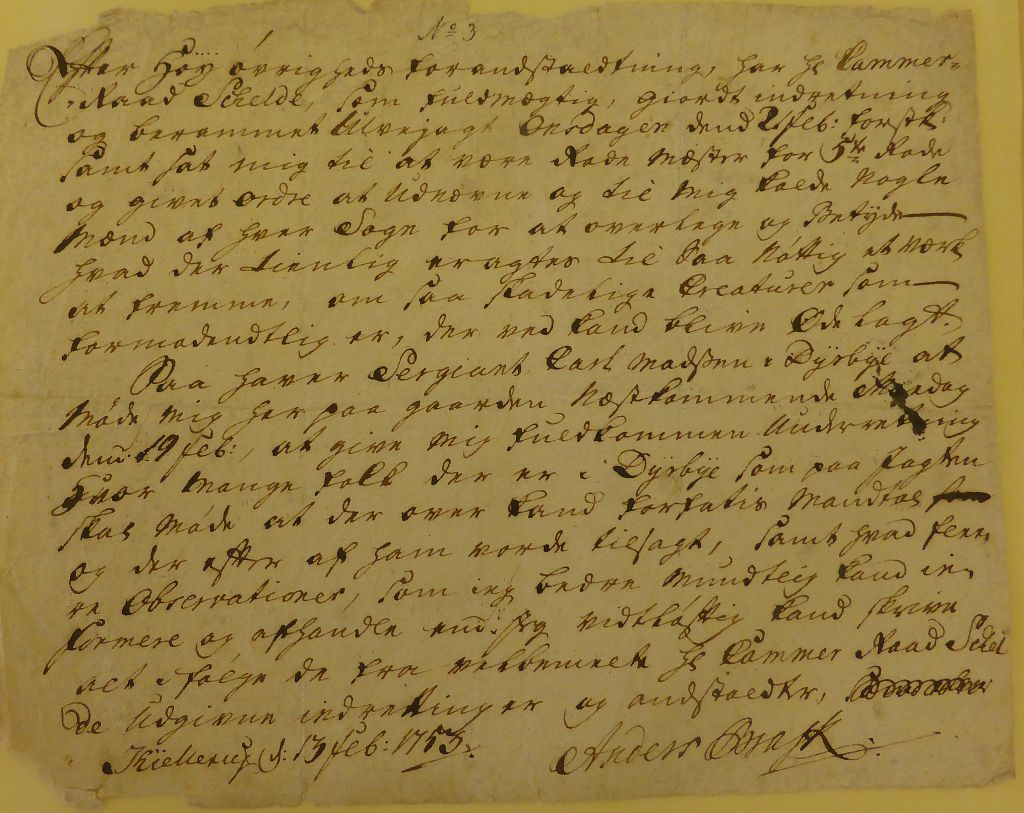 No 3
Efter Höy övrigheds forandstaeldtning, har hr Cammer=
Raad Schelde, som fuldmægtig, Giordt indretning
og berammet Ulvejagt Onsdagen dend 21 feb: forstk:
samt sat mig til at være Rode Mæster for 5te Rode
og givet ordre at Udnævne og til Mig kalde Nogle
Mænd af hver Sogn for at overlege og Betyde
hvad der tienlig eragtes til Saa Nöttig et Værk
at fremme, om saa skadelige Creaturer som
formodendtlig er, der ved kand blive Öde lagt.
Saa haver Sergiant Carl Madsen i Dÿrbÿe at
Möde Mig her paa gaarden Næstkommende Mandag
dend 19 feb:, at give Mig fuldkommen Underretning
Hvor Mange folk der er i Dÿrbÿe som paa Jagten
skal Möde at der over kand forfatis Mandtal
og der efter af ham vorde tilsagt, samt hvad flee=
re Observationer, som ieg bedre Mundtlig kand in=
formere og afhandle end jeg vidtlöftig kand skrive
alt i fölge de fra velbemelte hr Cammer Raad Schel
de Udgivne indretninger og andstaldter,
Kiellerup d: 13 feb: 1753.
Anders Brask